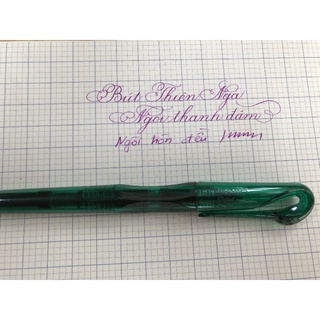 Bút Thiên Nga
Ngòi thanh đậm
Ngòi hòn đều 1mm